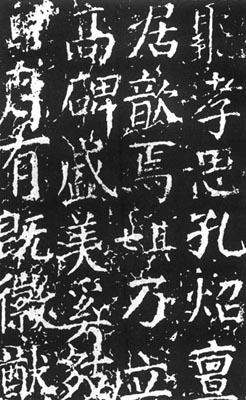 孝思孔炤亶
居歆焉乃立
高碑盛美
有既徽猷